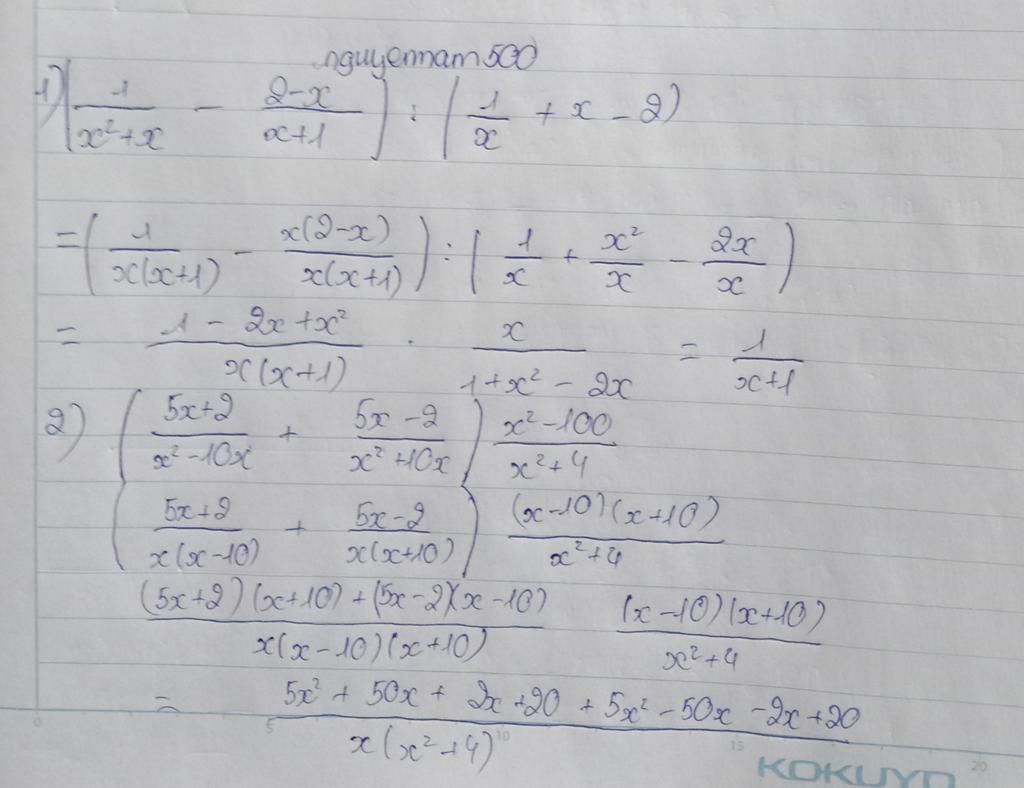 nguyennam500
1) (1/(x²+x) - (2-x)/(x+1)) : (1/x + x - 2)
= (1/(x(x+1)) - x(2-x)/(x(x+1))) : (1/x + x²/x - 2x/x)
= (1 - 2x + x²)/(x(x+1)) . x/(1+x² - 2x) = 1/(x+1)
2) ((5x+2)/(x²-10x) + (5x-2)/(x²+10x)) (x²-100)/(x²+4)
((5x+2)/(x(x-10)) + (5x-2)/(x(x+10))) (x-10)(x+10)/(x²+4)
((5x+2)(x+10)+(5x-2)(x-10))/(x(x-10)(x+10)) (x-10)(x+10)/(x²+4)
= (5x² + 50x + 2x+20 + 5x² -50x -2x+20)/(x(x²+4))
0 5 10 15 20
KOKUYO